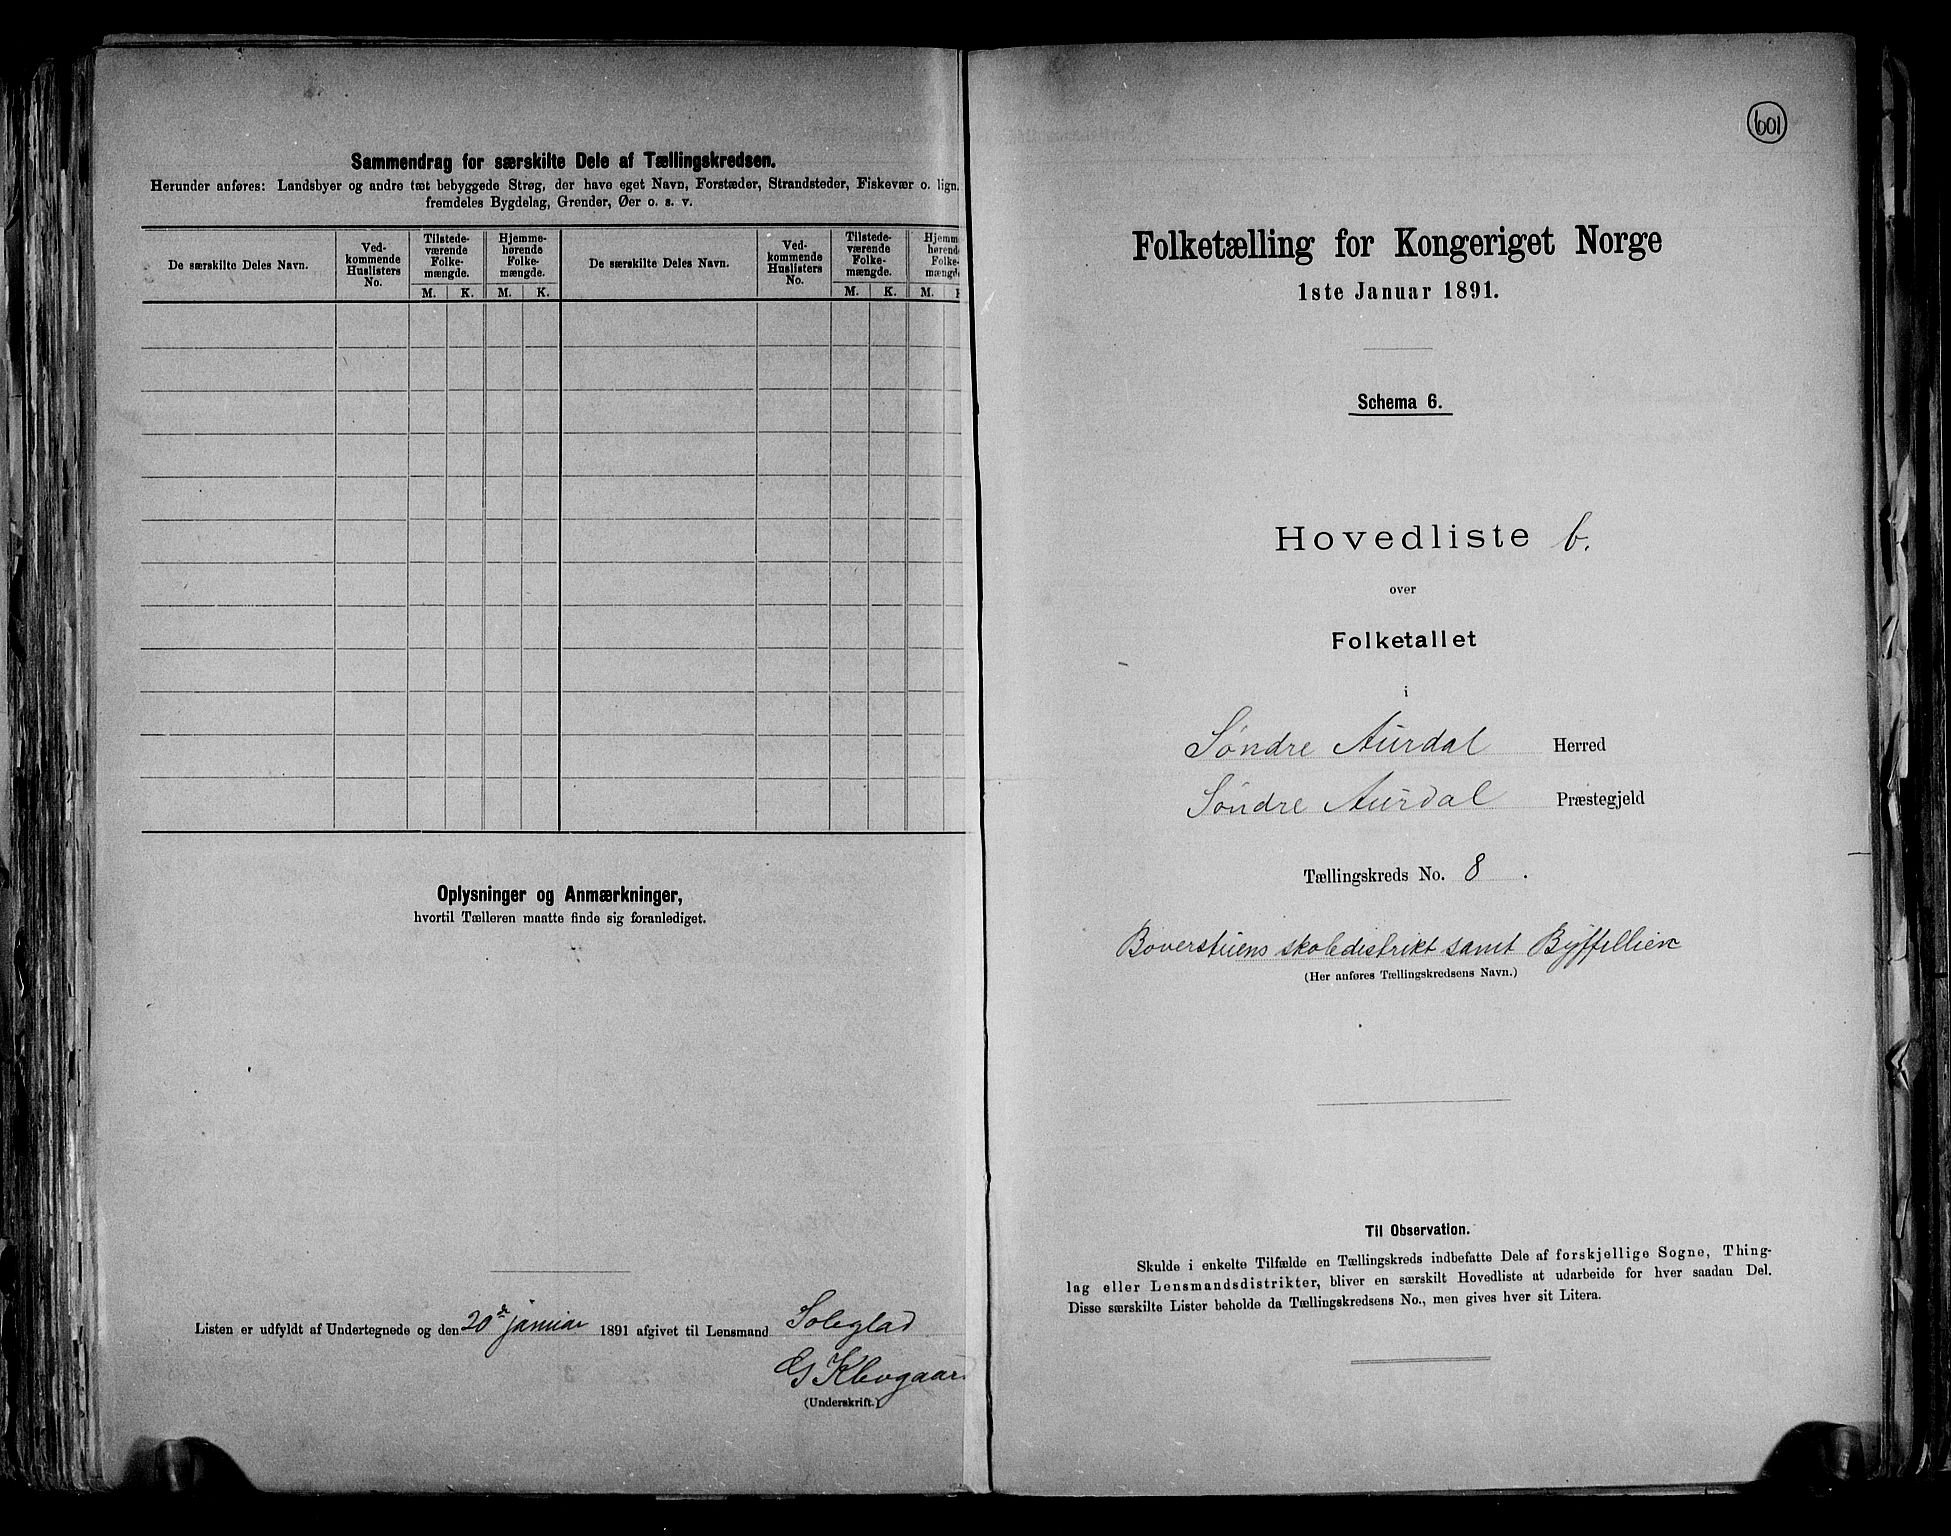 Sammendrag for særskilte Dele af Tællingskredsen.
Herunder anføres: Landsbyer og andre tæt bebyggede Strøg, der have eget Navn, Forstæder, Strandsteder, Fiskevær o. lign.
fremdeles Bygdelag, Grender, Øer o. s. v.
De særskilte Deles Navn.
Ved-
kommende
Huslisters
No.
Tilstede-
værende
Folke-
mængde.
Hjemme-
hørende
Folke-
mængde.
De særskilte Deles Navn.
Ved-
kommende
Huslisters
No.
Tilstede-
værende
Folke-
mængde.
Hjemm
hørend
Folke-
mængd
M. K. M. K. M. K. M.
Oplysninger og Anmærkninger,
hvortil Tælleren maatte finde sig foranlediget.
Listen er udfyldt af Undertegnede og den 20de januar 1891 afgivet til Lensmand Soleglad
(Underskrift.)
601
Folketælling for Kongeriget Norge
1ste Januar 1891.
Schema 6.
Hovedliste b.
over
Folketallet
i
Søndre Aurdal Herred
Søndre Aurdal Præstegjeld
Tællingskreds No. 8.
skoledistrikt samt
(Her anføres Tællingskredsens Navn.)
Til Observation.
Skulde i enkelte Tilfælde en Tællingskreds indbefatte Dele af forskjellige Sogne, Thing-
lag eller Lensmandsdistrikter, bliver en særskilt Hovedliste at udarbeide for hver saadan Del.
Disse særskilte Lister beholde da Tællingskredsens No., men gives hver sit Litera.